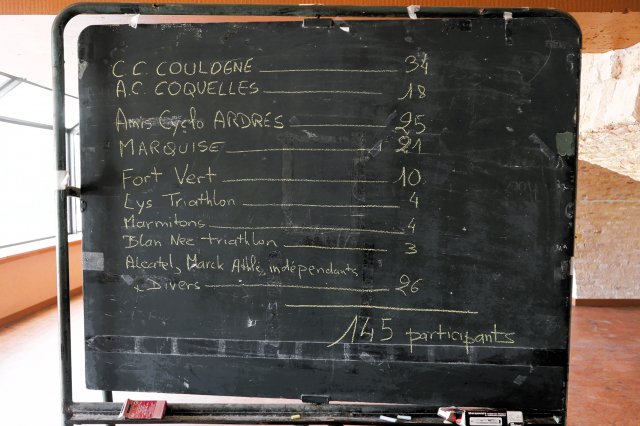 C.C. COULOGNE 34
A.C. COQUELLES 18
Amis Cyclo ARDRES 25
MARQUISE 21
Fort Vert 10
Lys Triathlon 4
Marmitons 4
Blan Nez triathlon 3
Alcatel, Marck Athlé, indépendants
& Divers 26
145 participants